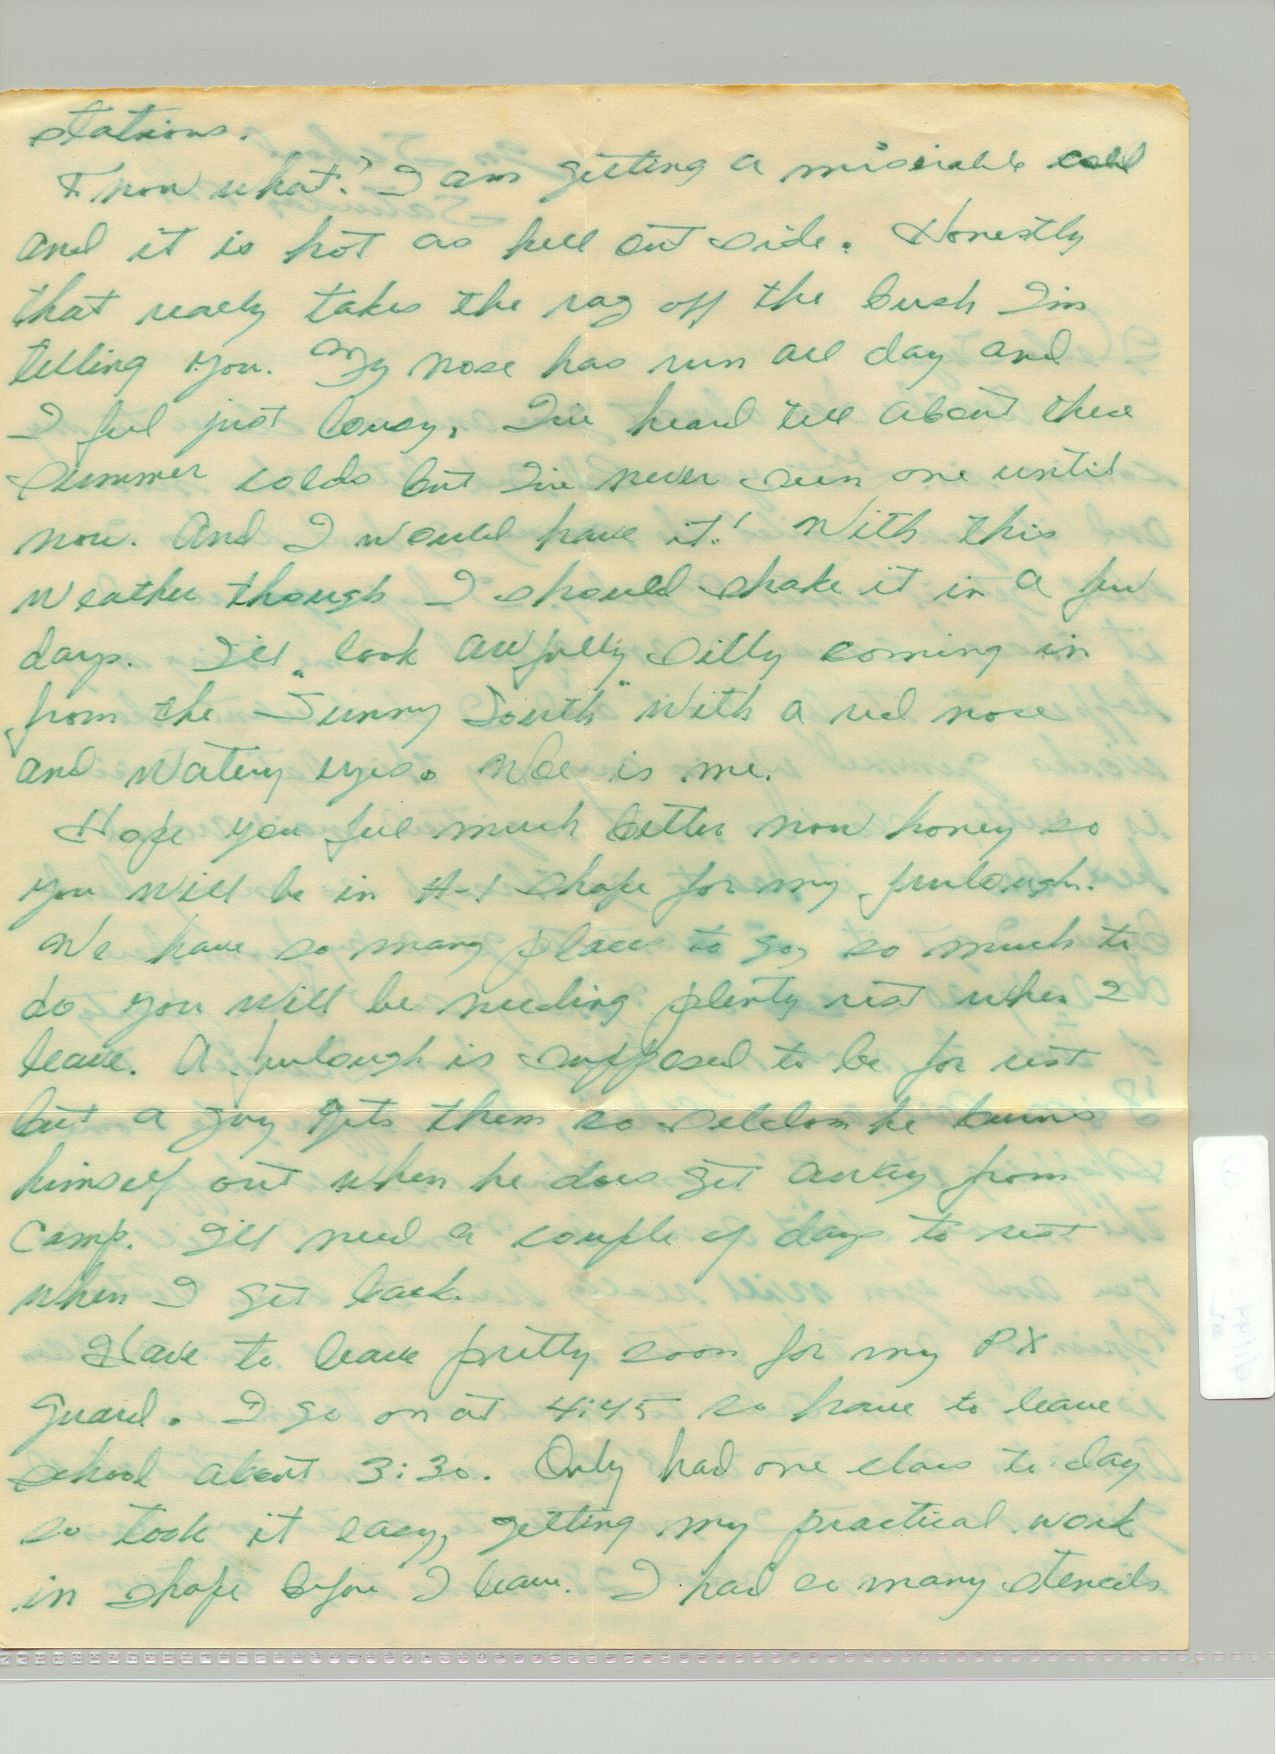 stations.
Know what? I am getting a miserable cold
and it is hot as hell out side. Honestly
that really takes the rag off the bush I'm
telling you. My nose has run all day and
I feel just lousy. I've heard tell about these
summer colds but I've never seen one until
now. And I would have it! With this
weather though I should shake it in a few
days. I'll look awfully silly coming in
from the "Sunny South" with a red nose
and watery eyes. Woe is me.
Hope you feel much better now honey so
you will be in A-1 shape for my furlough.
We have so many places to go, so much to
do you will be needing plenty rest when I
leave. A furlough is supposed to be for rest
but a guy gets them so seldom he burns
himself out when he does get away from
Camp. I'll need a couple of days to rest
when I get back.
Have to leave pretty soon for my PX
guard. I go on at 4:45 so have to leave
school about 3:30. Only had one class to day
so took it easy, getting my practical work
in shape before I leave. I had so many stencils